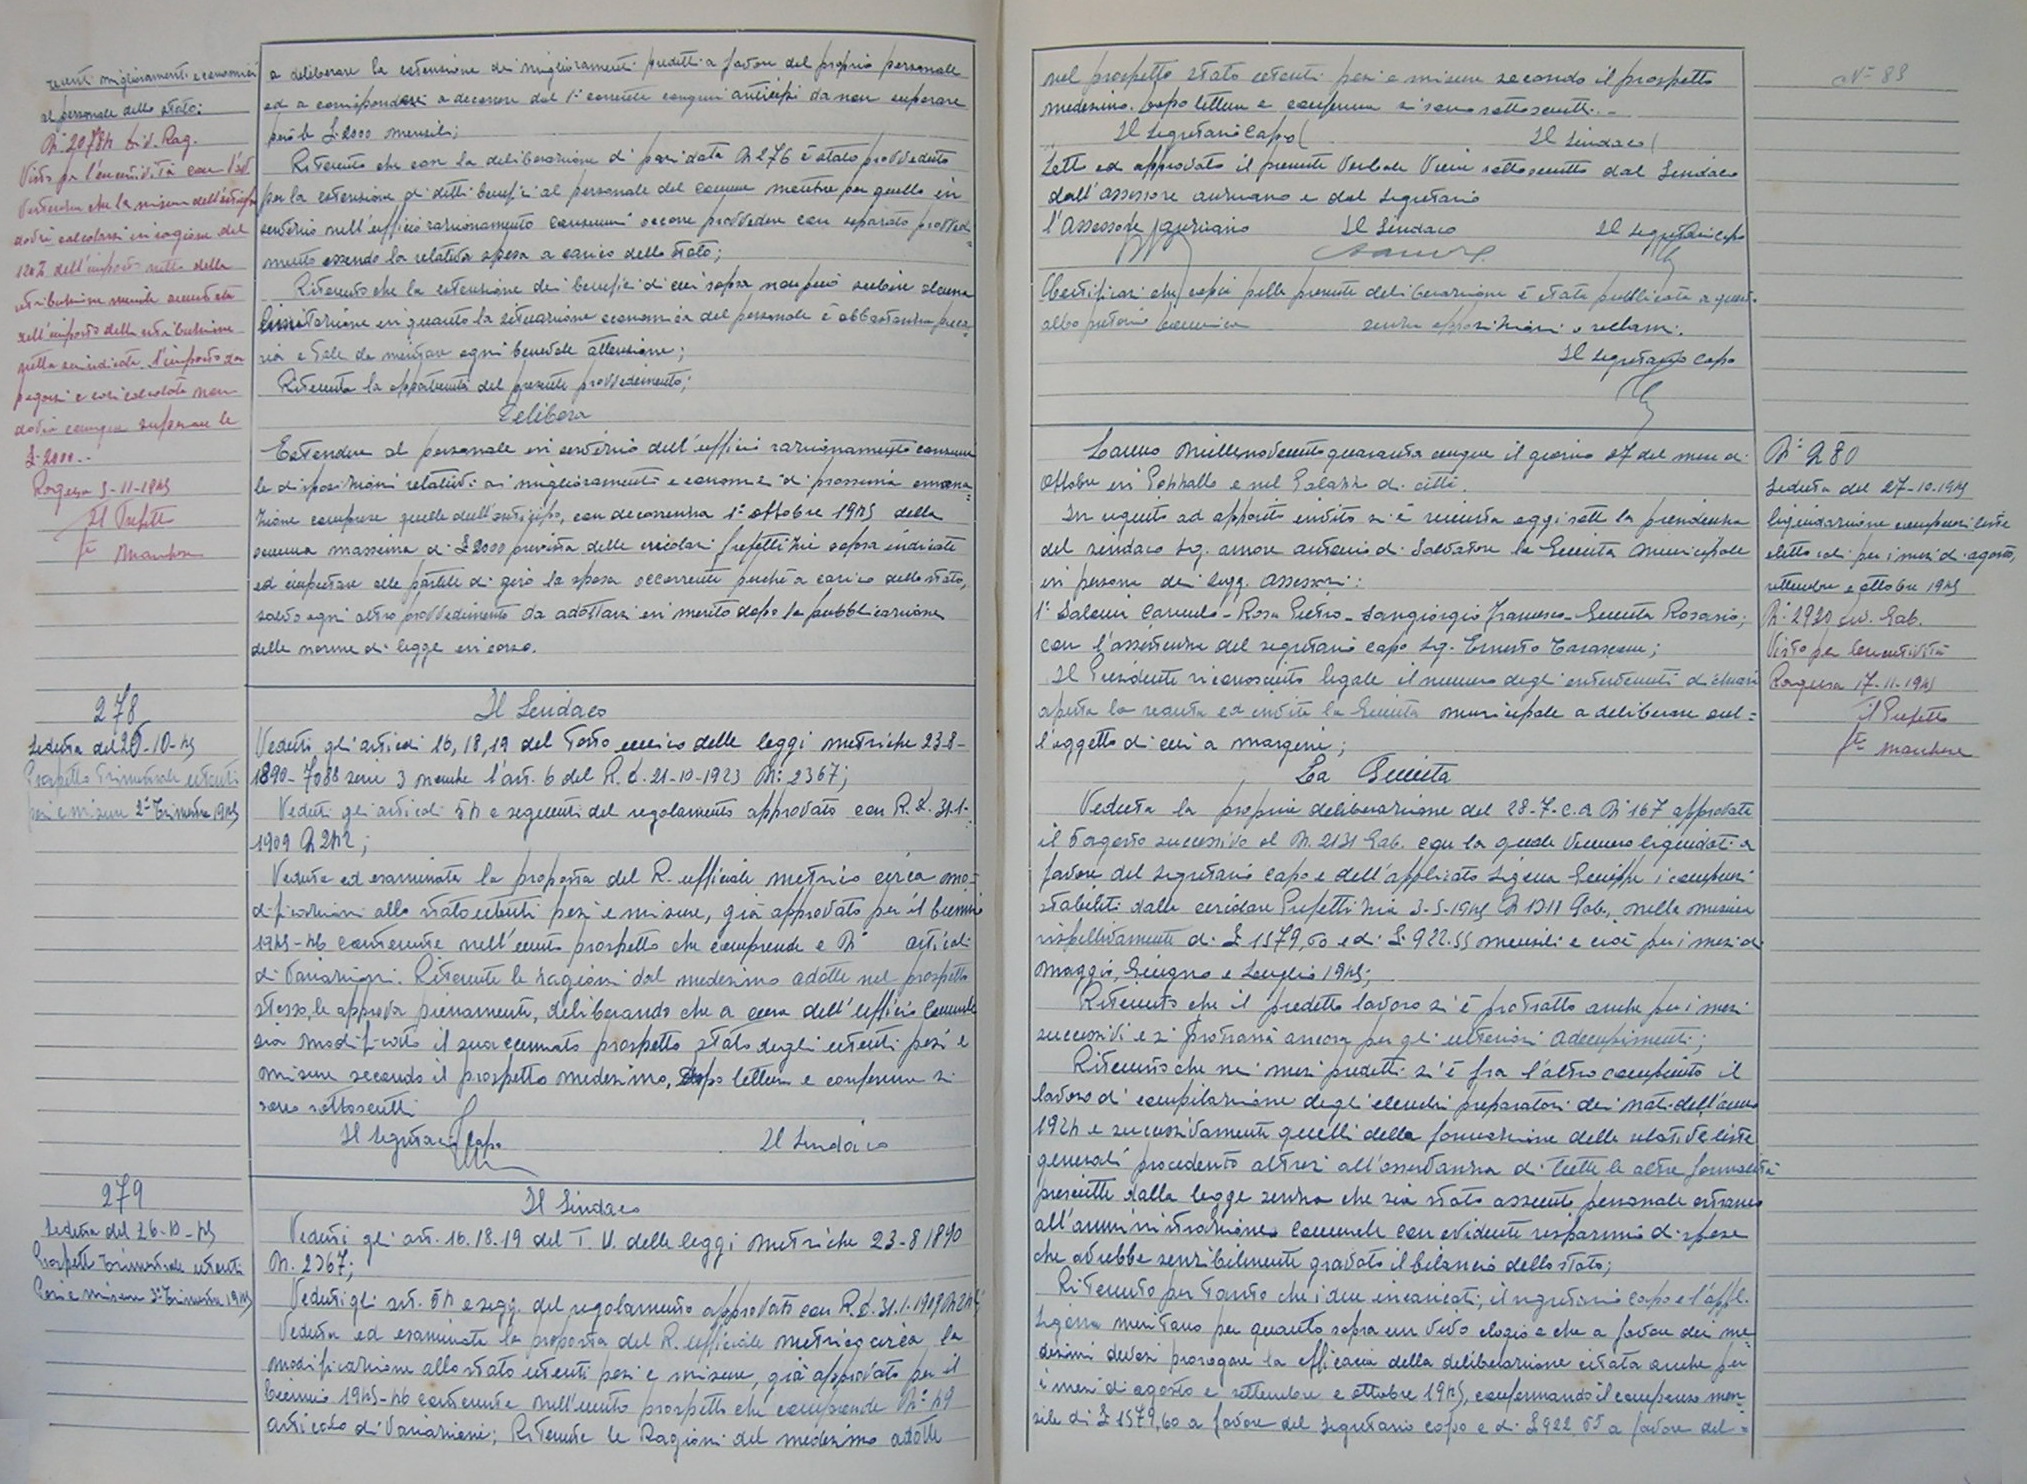 recenti miglioramenti economici
al personale dello stato:
N° 20784 Div. Rag.
Visto per l'esecutività con l'av
vertenza che la misura dell'anticipo
dovrà calcolarsi in ragione del
120% dell'importo netto della
retribuzione mensile
dell'importo della retribuzione
netta suindicata. l'importo da
pagarsi e così calcolato non
dovrà comunque superare le
£. 2000..
Ragusa 5-11-1945
Il Prefetto
a deliberare la estensione dei miglioramenti predetti a favore del proprio personale
ed a corrispondere a decorrere dal 1° corrente congrui anticipi da non superare
però le £ 2000 mensili;
Ritenuto che con la deliberazione di pari data N 276 è stato provveduto
per la estensione di detti benefici al personale del comune mentre per quello in
servizio nell'ufficio razionamento consumi occorre provvedere con separato provvedi=
mento essendo la relativa spesa a carico dello stato;
Ritenuto che la estensione dei benefici di cui sopra non può subire alcuna
limitazione in quanto la situazione economica del personale è abbastanza preca=
ria e tale da meritare ogni benevole attenzione;
Ritenuta la opportunità del presente provvedimento;
Delibera
Estendere al personale in servizio dell'ufficio razionamento consumi
le disposizioni relative ai miglioramenti economici di prossima emana=
zione comprese quelle dell'anticipo, con decorrenza 1° ottobre 1945 della
somma massima di £ 2000 prevista delle circolari prefettizie sopra indicate
ed imputare alle partite di giro la spesa occorrente perché a carico dello stato,
salvo ogni altro provvedimento da adottarsi in merito dopo la pubblicazione
delle norme di legge in corso.
278
Seduta del 26-10-45
Prospetto Trimestrale utenti
pesi e misure 2° Trimestre 1945
Il Sindaco
Veduti gli articoli 16, 18, 19 del Testo unico delle leggi metriche 23-8-
1890-7088 serie 3 nonche l'art. 6 del R.d. 21-10-1923 N: 2367;
Veduti gli articoli 54 e seguenti del regolamento approvato con R.d. 31-1-
1909 N 242;
Veduta ed esaminata la proposta del R. ufficiale metrico circa mo=
dificazioni allo stato utenti pesi e misure, già approvato per il biennio
1945-46 contenente nell'unito prospetto che comprende N° articoli
di Variazioni. Ritenute le ragioni dal medesimo adotte nel prospetto
stesso, le approva pienamente, deliberando che a cura dell'ufficio Comunale
sia modificato il succennato prospetto stato degli utenti pesi e
misure secondo il prospetto medesimo, dopo lettura e conferma si
sono sottoscritti
Il Segretario Capo Il Sindaco
279
Seduta del 26-10-45
Prospetto Trimestrale utenti
Pesi e misure 3° Trimestre 1945
Il Sindaco
Veduti gli art. 16.18.19 del T. U. delle leggi metriche 23-8 1890
N. 2367;
Veduti gli art. 54 e segg. del regolamento approvato con R.d. 31.1.1909 N 242
Veduta ed esaminata la proposta del R. ufficiale metrico circa la
modificazione allo stato utenti pesi e misure, già approvato per il
biennio 1945-46 contenente nell'unito prospetto che comprende N° 49
articolo di Variazioni; Ritenute le Ragioni del medesimo adotte
N° 89
nel prospetto stato utenti pesi e misure secondo il prospetto
medesimo. Dopo lettura e conferma si sono sottoscritti..
Il Segretario Capo Il Sindaco
Letto ed approvato il presente Verbale Viene sottoscritto dal Sindaco
dall'assessore anziano e dal Segretario
l'Assessore anziano Il Sindaco Il Segretario Capo
Certificasi che copia della presente deliberazione è stata pubblicata a quest'
albo pretorio senza opposizioni o reclami.
Il Segretario Capo
L'anno Millenovecentoquarantacinque il giorno 27 del mese di
Ottobre in Pozzallo e nel Palazzo di città.
In seguito ad apposito invito si è riunita oggi sotto la presidenza
del sindaco sig. Amore Antonio di Salvatore la Giunta Municipale
in persona dei sigg. Assessori:
1° Salemi Carmelo - Rosa Pietro - Sangiorgio Francesco - Giunta Rosario;
con l'assistenza del segretario capo sig. Ernesto Tarascone;
Il Presidente riconosciuto legale il numero degli intervenuti dichiara
aperta la seduta ed invita la Giunta municipale a deliberare sul=
l'oggetto di cui a margine;
La Giunta
Veduta la propria deliberazione del 28-7-c.a N° 167 approvata
il agosto successivo al N. 2131 Gab. con la quale Vennero liquidati a
favore del Segretario Capo e dell'applicato Sigona Giuseppe i compensi
stabiliti dalla circolare Prefettizia 3-5-1945 N 1211 Gab., nella misura
rispettivamente di £ 1579,60 e di £. 922.55 mensili e cioè per i mesi di
Maggio, Giugno e Luglio 1945;
Ritenuto che il predetto lavoro si è protratto anche per i mesi
successivi e si protrarrà ancora per gli ulteriori adempimenti;
Ritenuto che nei mesi predetti si è fra l'altro compiuto il
lavoro di compilazione degli elenchi preparatori dei nati dell'anno
1924 e successivamente quelli della formazione delle relative liste
generali procedento altresi all'osservanza di tutte le altre formalità
prescritte dalla legge senza che sia stato assunto personale estraneo
all'amministrazione Comunale con evidente risparmio di spese
che avrebbe sensibilmente gravato il bilancio dello stato;
Ritenuto per tanto che i due incaricati, il segretario capo e l'appl.
Sigona meritano per quanto sopra un vivo elogio e che a favore dei me=
desimi devesi prorogare la efficacia della deliberazione citata anche per
i mesi di agosto e settembre e ottobre 1945, confermando il compenso men=
sile di £ 1579,60 a favore del Segretario capo e di £ 922,55 a favore del=
N° 280
Seduta del 27-10-1945
liquidazione compensi liste
elettorali per i mesi di agosto,
settembre e ottobre 1945
N° 2920 Div. Gab.
Visto per l'esecutività
Ragusa 17-11-1945
il Prefetto